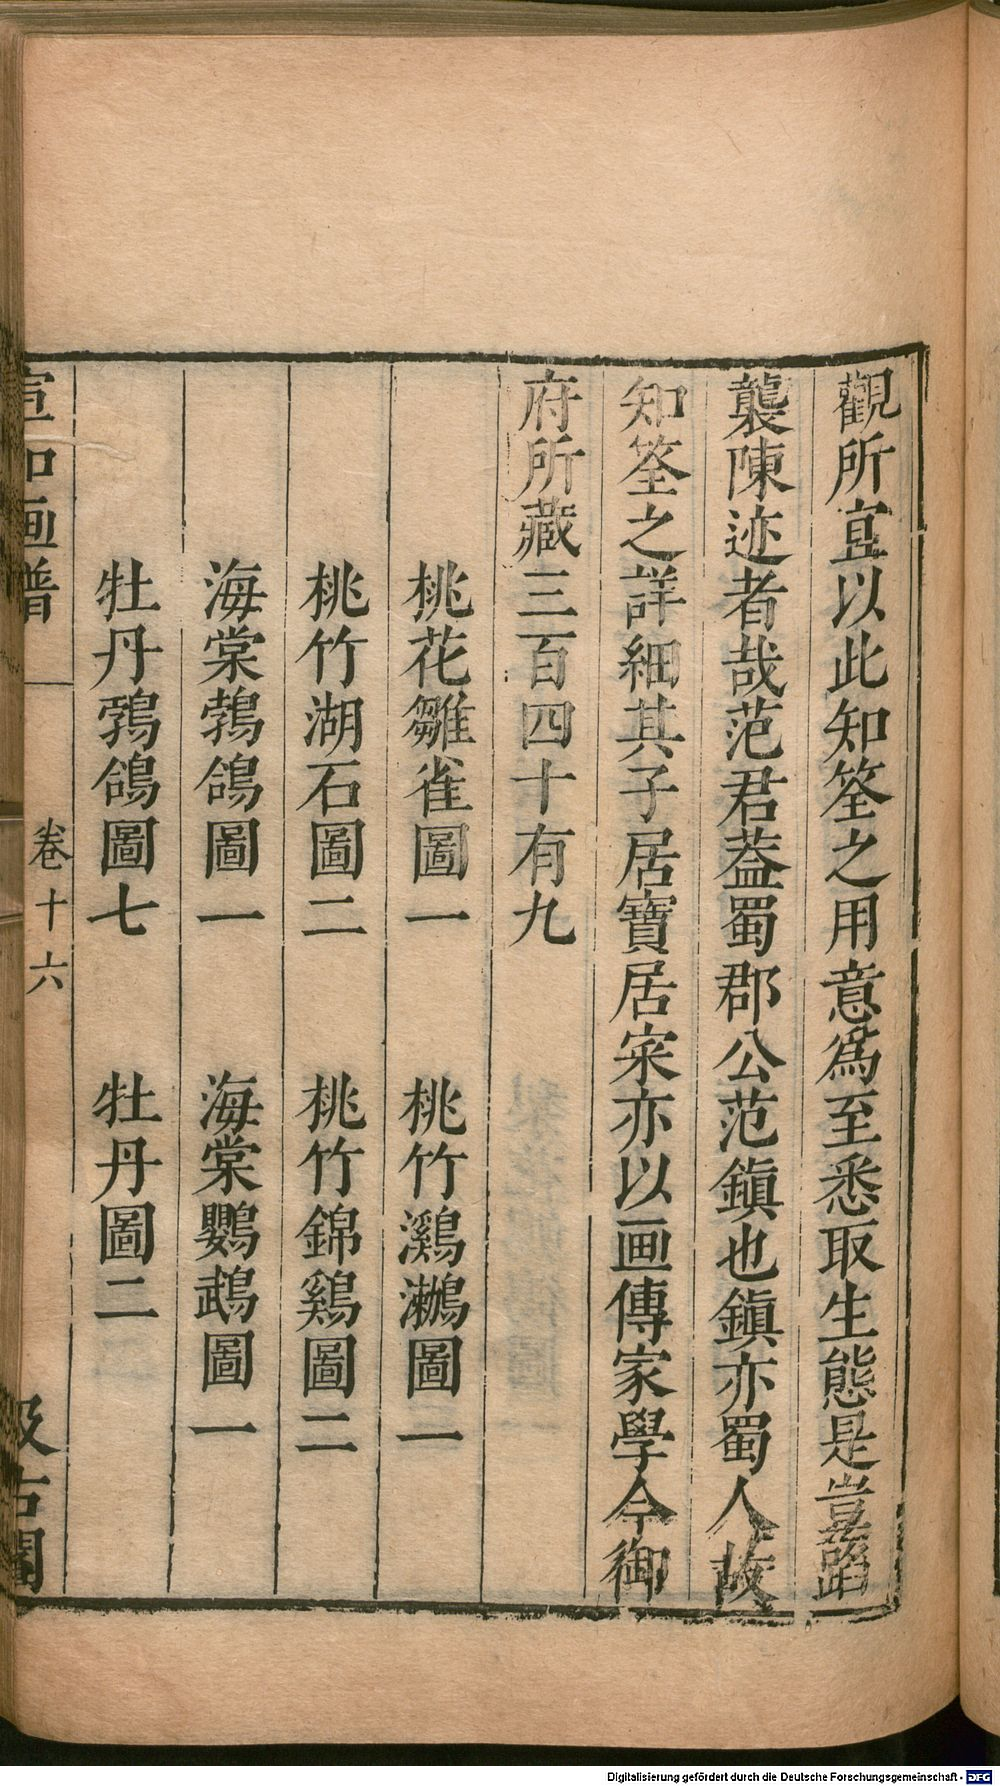 觀所宜以此知筌之用意爲至悉取生態是豈蹈
襲陳迹者哉范君葢蜀郡公范鎭也鎭亦蜀人故
知筌之詳細其子居寶居寀亦以画傳家學今御
府所藏三百四十有九
桃花雛雀圖一 桃竹鸂鷘圖二
桃竹湖石圖二 桃竹錦鷄圖二
海棠鵓鴿圖一 海棠鸚鵡圖一
牡丹鵓鴿圖七 牡丹圖二
宣和画譜 卷十六 汲古閣
Digitalisierung gefördert durch die Deutsche Forschungsgemeinschaft - DFG